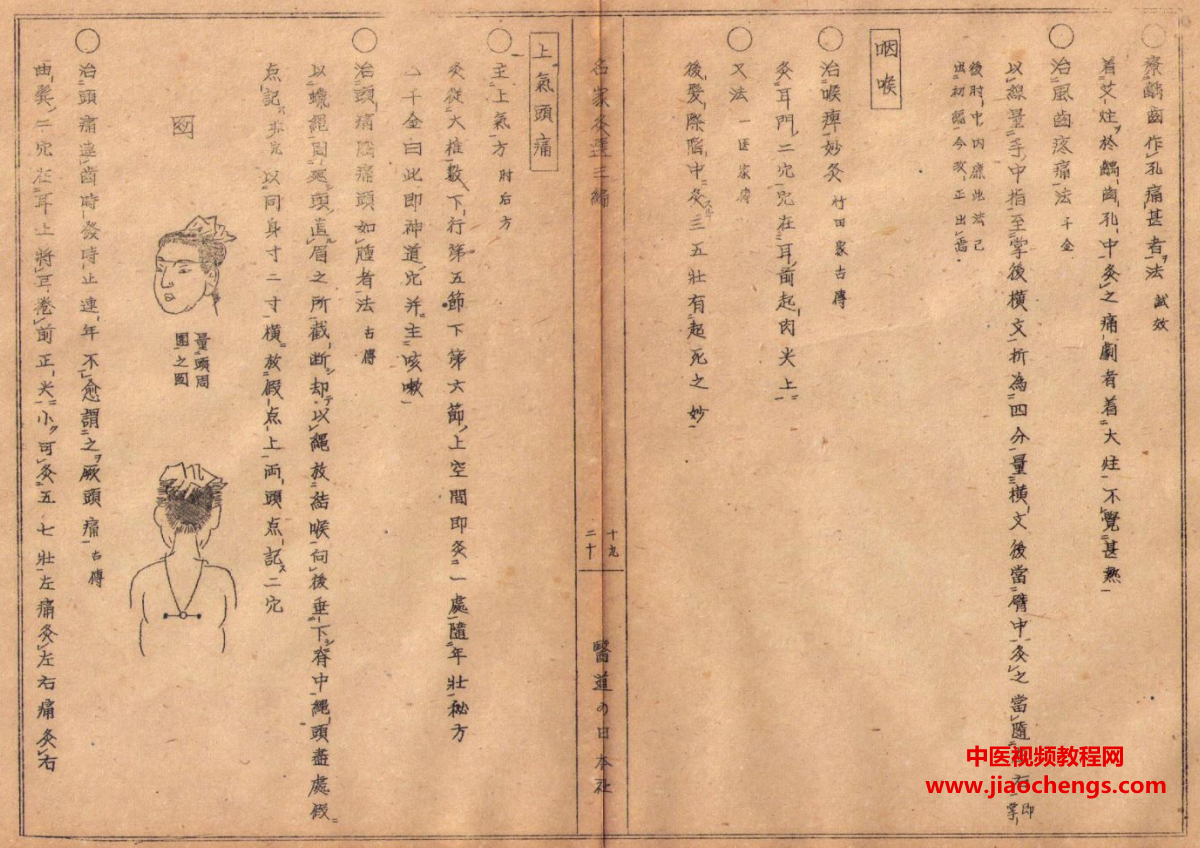 療齲齒作孔痛甚者法 試效
着艾炷於齲齒孔中灸之痛劇者着大炷不覺甚熱
治風齒疼痛法 千金
以線量手中指至掌後横文折為四分量横文後當臂中灸之當隨左右 即掌
後肘中内廉此法已
出初編今改正出焉
咽喉
治喉痺妙灸 竹田家古傳
灸耳門二穴穴在耳前起肉尖上
又法
後髮際陷中灸三五壯有起死之妙
名家灸選三編
十九
二十
醫道の日本社
上氣頭痛
主上氣方 肘后方
灸從大椎数下行第五節下第六節上空間即灸一處隨年壯秘方
千金曰此即神道穴并主咳嗽
治頭痛腦痛頭如腫者法 古傳
以蠟繩周匝頭直眉之所截断却以繩放結喉向後垂下脊中繩頭盡處假
点記 以同身寸二寸横放假点上両頭点記二穴
図
量頭周
圍之図
治頭痛連齒時發時止連年不愈謂之厥頭痛 古傳
曲鬢二穴在耳上將耳卷前正尖小可灸五七壯左痛灸左右痛灸右
中医视频教程网
www.jiaochengs.com